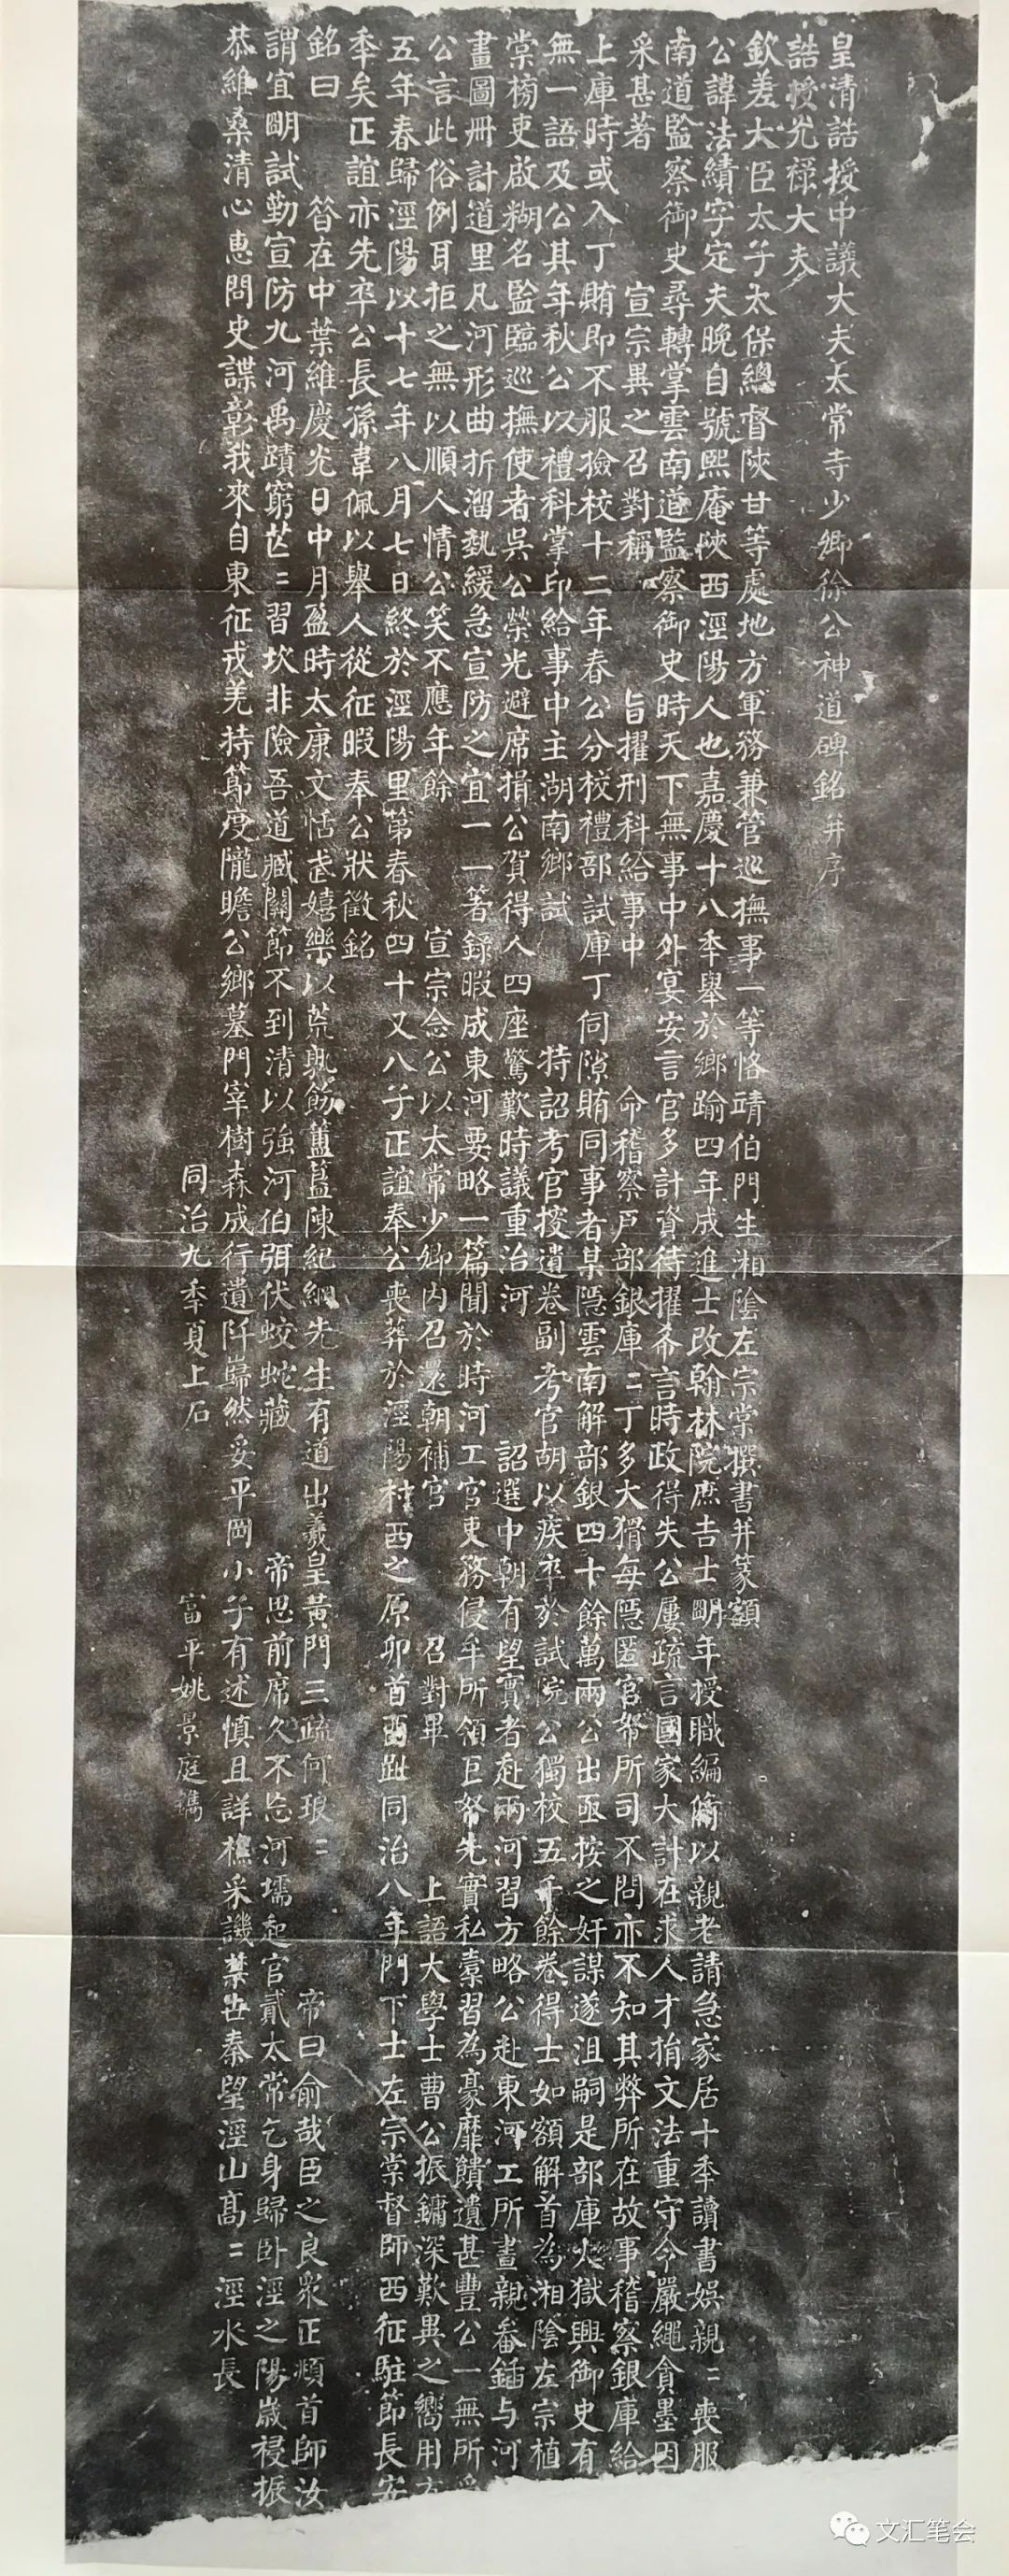 皇清誥授中議大夫太常寺少卿徐公神道碑銘并序
誥授光祿大夫
欽差大臣太子太保總督陝甘等處地方軍務兼管巡撫事一等恪靖伯門生湘陰左宗棠撰書并篆額
公諱法績字定夫晚自號熙庵陝西涇陽人也嘉慶十八年舉於鄉踰四年成進士改翰林院庶吉士明年授職編脩以親老請急家居十年讀書娛親二喪服
南道監察御史尋轉掌雲南道監察御史時天下無事中外宴安言官多計資待擢希言時政得失公屢疏言國家大計在求人才捐文法重守令嚴繩貪墨因
采甚著 宣宗異之召對稱 旨擢刑科給事中 命稽察戶部銀庫二丁多大猾每隱匿官帑所司不問亦不知其弊所在故事稽察銀庫給
上庫時或入丁賄即不服撿校十二年春公分校禮部試庫丁伺隙賄同事者某隱雲南解部銀四十餘萬兩公出亟按之奸謀遂沮嗣是部庫火獄興御史有
無一語及公其年秋公以禮科掌印給事中主湖南鄉試 特詔考官搜遺卷副考官胡以疾卒於試院公獨校五千餘卷得士如額解首為湘陰左宗植
棠榜吏啟糊名監臨巡撫使者吳公榮光避席揖公賀得人四座驚歎時議重治河 詔選中朝有望實者赴兩河習方略公赴東河工所晝親畚鍤与河
畫圖冊計道里凡河形曲折溜埶緩急宣防之宜一一著錄暇成東河要略一篇聞於時河工官吏務侵牟所領巨帑先實私橐習為豪靡饋遺甚豐公一無所
公言此俗例耳拒之無以順人情公笑不應年餘 宣宗念公以太常少卿內召還朝補官 召對畢 上語大學士曹公振鏞深歎異之嚮用方
五年春歸涇陽以十七年八月七日終於涇陽里第春秋四十又八子正誼奉公喪葬於涇陽村西之原卯首酉趾同治八年門下士左宗棠督師西征駐節長安
年矣正誼亦先卒公長孫韋佩以舉人從征暇奉公狀徵銘
銘曰 昝在中葉維慶光日中月盈時太康文恬武嬉樂以荒孰飭簠簋陳紀綱先生有道出羲皇黃門三疏何琅二 帝曰俞哉臣之良眾正頫首師汝
謂宜明試勤宣防九河禹蹟窮芒二習坎非險吾道臧關節不到清以強河伯弭伏蛟蛇藏 帝思前席久不忘河壖起官貳太常乞身歸卧涇之陽歲祲振
恭維桑清心惠問史諜彰我來自東征戎羌持節度隴瞻公鄉墓門宰樹森成行遺阡巋然妥平岡小子有述慎且詳樵采譏禁告秦望涇山高二涇水長
同治九年夏上石 富平姚景庭鐫
文汇笔会